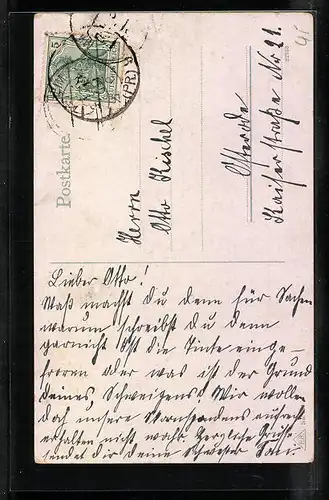 Postkarte.
Herrn
Otto Kischel
Osterode
Kaiserstraße Nr 21.
Lieber Otto!
Waß machst du denn für Sachen
warum schreibst du denn
garnicht Ist die Tinte einge-
froren oder was ist der Grund
deines Schweigens? Wir wollen
doch unsere aufrecht
erhalten nicht wahr Herzliche Grüße
sendet dir deine Schwester
5
(PR)